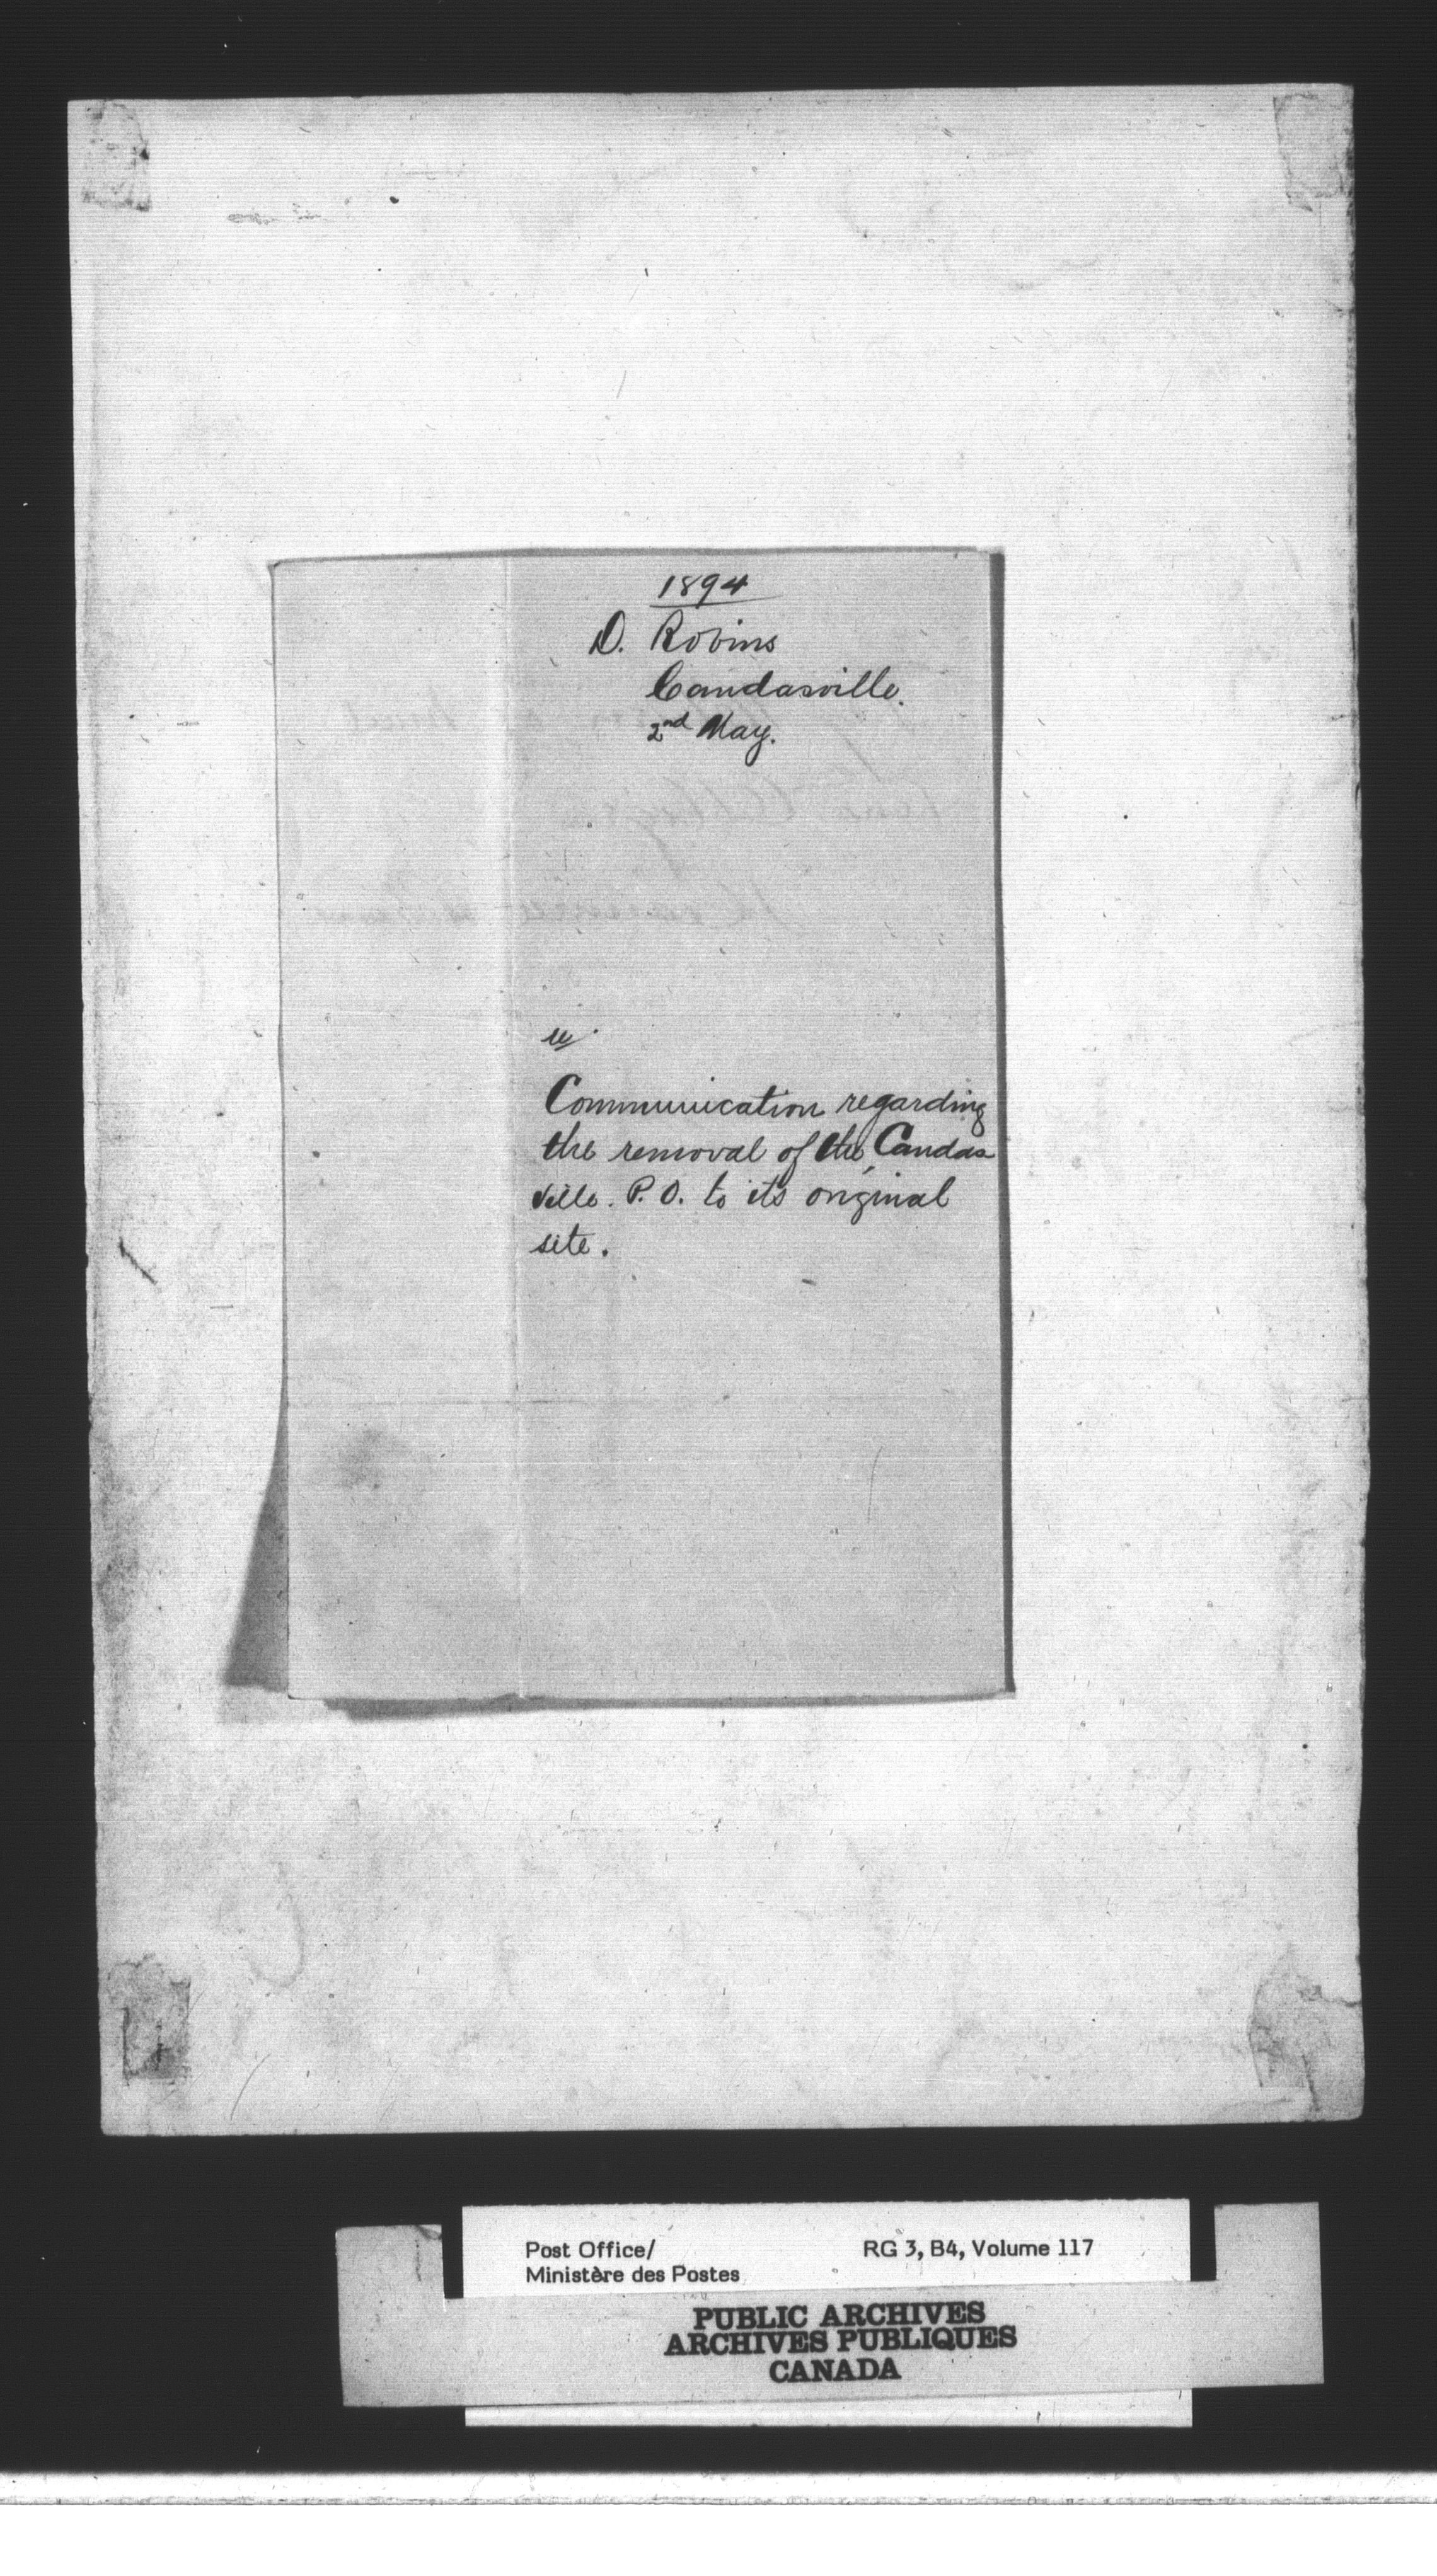 1894
D. Robins
Candasville.
2nd May.
re
Communication regarding
the removal of the Candas
ville. P.O. to its original
site.
Post Office/ RG 3, B4, Volume 117
Ministère des Postes
PUBLIC ARCHIVES
ARCHIVES PUBLIQUES
CANADA